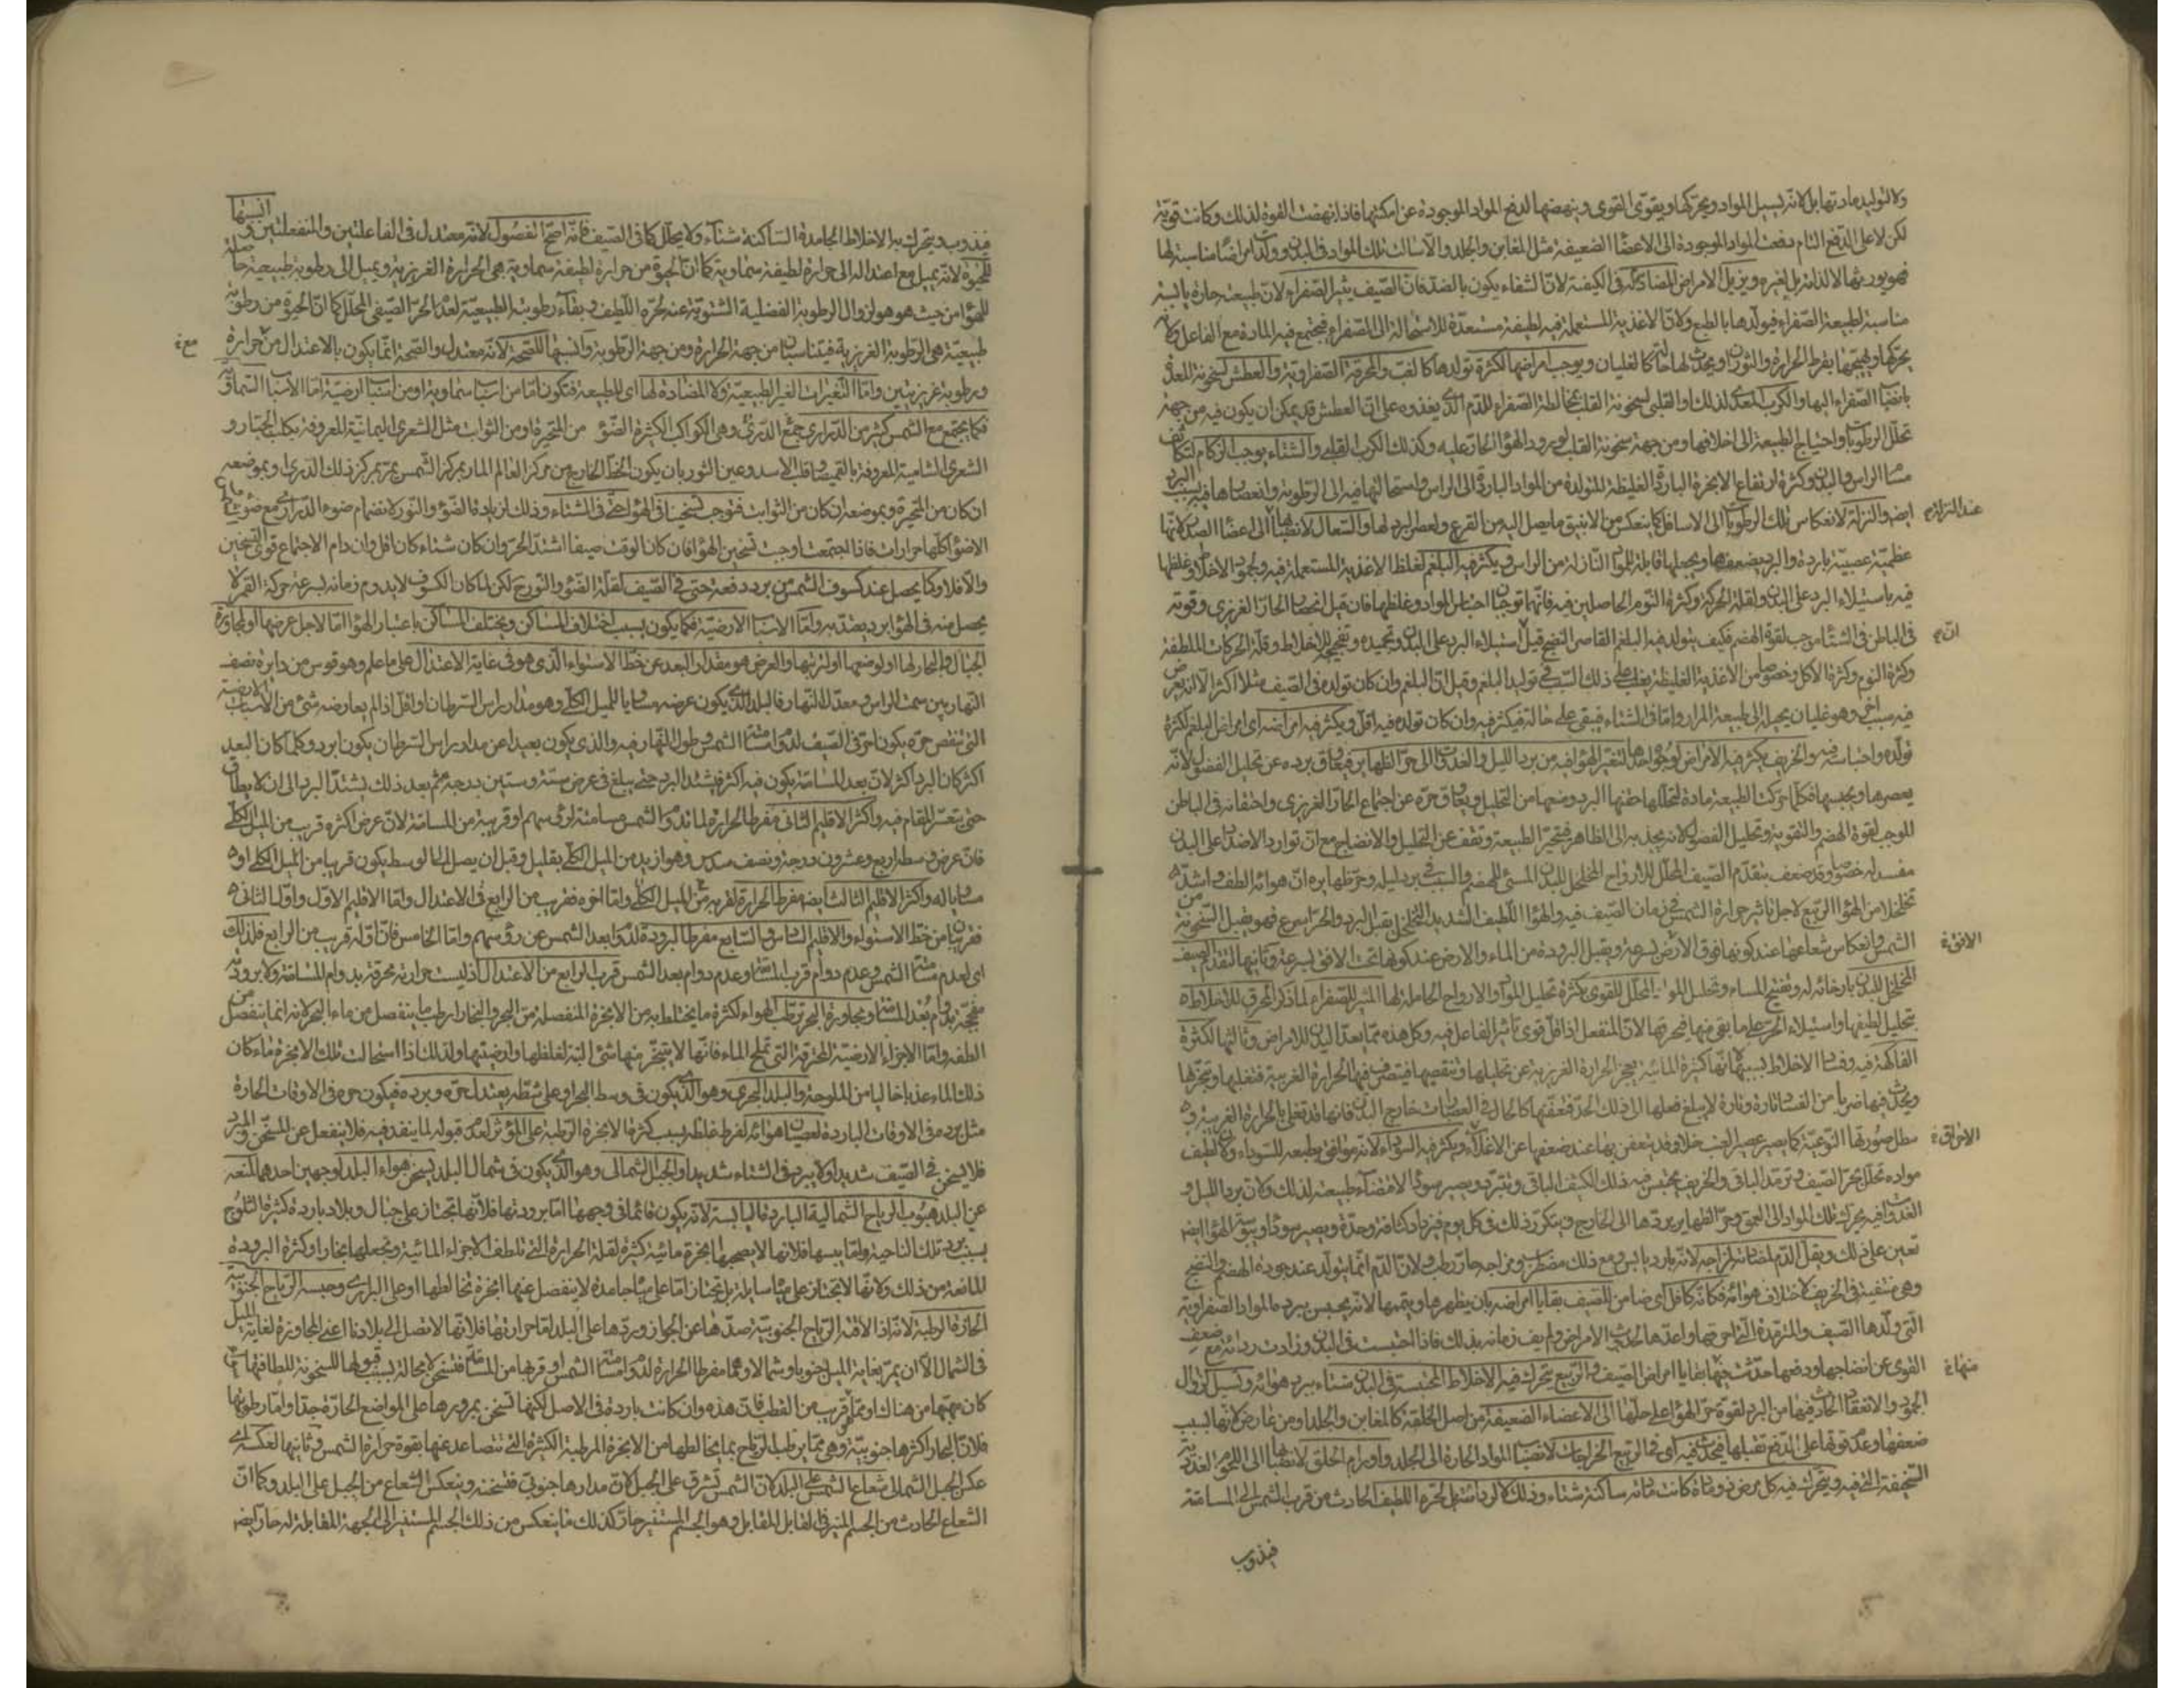 ولا لتوليد مادتها بل لانه يسيل المواد ويحركها ويقوى القوى وينهضها لدفع المواد الموجودة عن امكنتها فاذا نهضت القوة لذلك وكانت قوية
لكن لا على الدفع التام دفعت المواد الموجودة الى الاعضاء الضعيفة مثل المغابن والجلد والا سالت تلك المواد فى البدن وولدت امراضا مناسبة لها
فهو يورثها لا لذاته بل لغيره ويزيل الامراض المضادة له فى الكيفية لان الشفاء يكون بالضد فان الصيف يثير الصفراء لان طبيعته حارة يابسة
مناسبة لطبيعة الصفراء فيولدها بالطبع ولان الاغذية المستعملة فيه لطيفة مستعدة للاستحالة الى الصفراء فيجتمع فيه المادة مع الفاعل ولانه
يحركها ويهيجها بفرط الحرارة والثوران ويحدث لها حالة كالغليان ويوجب امراضها لكثرة تولدها كالغب والمحرقة الصفراوية والعطش لسخونة المعدة
بانصباب الصفراء اليها والكرب المعدى لذلك او القلبى لسخونة القلب بمخالطة الصفراء للدم الذى يغذوه على ان العطش قد يمكن ان يكون فيه من جهة
تحلل الرطوبات واحتياج الطبيعة الى اخلافها ومن جهة سخونة القلب لورود الهواء الحار عليه وكذلك الكرب القلبى والشتاء يوجب الزكام لتكاثف
مسام الراس والبدن وكثرة ارتفاع الابخرة الباردة الغليظة المتولدة من المواد الباردة الى الراس واستحالتها فيه الى الرطوبة وانعصارها فيه بسبب البرد
ايضه والنزلة لانعكاس تلك الرطوبات الى الاسافل كما ينعكس من الانبيق ما يصل اليه من القرع ولعصر البرد لها والسعال لانصبابها الى اعضاء الصدر لانها
عظمية عصبية باردة والبرد يضعفها ويجعلها قابلة للمواد النازلة من الراس ويكثر فيه البلغم لغلظ الاغذية المستعملة فيه ولجمود الاخلاط وغلظها
فيه باستيلاء البرد على البدن ولقلة الحركة وكثرة النوم الحاصلين فيه فانهما توجبان احتباس المواد وغلظها فان قيل انحصار الحار الغريزى وقوته
فى الباطن فى الشتاء موجب لقوة الهضم فكيف يتولد فيه البلغم القاصر النضج قيل استيلاء البرد على البدن وتجميده وتفجيجه للاخلاط وقلة الحركات الملطفة
وكثرة النوم وكثرة الاكل وخصوصا من الاغذية الغليظة يغلب على ذلك السبب فى توليد البلغم وقيل ان البلغم وان كان تولده فى الصيف مثلا اكثر الا انه يعرض
فيه سبب اخر وهو غليان يحيله الى طبيعة المرار واما فى الشتاء فيبقى على حاله فيكثر فيه وان كان تولده فيه اقل ويكثر فيه امراضه اى امراض البلغم لكثرة
تولده واحتباسه فيه والخريف يكثر فيه الامراض لوجوه احدها لتغير الهواء فيه من برد الليل والغدوات الى حر الظهاير فيعاوق برده عن تحليل الفضول لانه
يعصرها ويحبسها فكلما تحركت الطبيعة مادة لتحللها حقنها البرد ومنعها من التحليل ويعاوق حره عن اجتماع الحار الغريزى واحتقانه فى الباطن
الموجب لقوة الهضم والتقوية وتحليل الفضول لانه يجذبه الى الظاهر فتحير الطبيعة وتقف عن التحليل والانضاج مع ان توارد الاضداد على البدن
مفسد له خصوصا وقد ضعف بتقدم الصيف المحلل للارواح المخلخل للبدن المسىء للهضم والسبب فى برد ليله وحر ظهايره ان هوائه الطف واشد
تخلخلا من الهواء الربيعى لاجل تاثير حرارة الشمس فى زمان الصيف فيه والهواء اللطيف الشديد التخلخل يقبل البرد والحر اسرع فهو يقبل السخونة من
الشمس وانعكاس شعاعها عند كونها فوق الارض بسرعة ويقبل البرودة من الماء والارض عند كونها تحت الافق بسرعة وثانيها لتقدم الصيف
المخلخل للبدن بارخائه له وتفتيح المسام وتحليل المواد المحلل للقوى بكثرة تحليل المواد والارواح الحاملة لها المثير للصفراء لما ذكر المحرق للاخلاط
بتحليل لطيفها واستيلاء الحر على ما بقى منها فيحرقها لان المنفعل اذا قل قوى تاثير الفاعل فيه وكل هذه مما يعد البدن للامراض وثالثها لكثرة
الفاكهة فيه وفساد الاخلاط بسببها لانها كثيرة المائية يعجز الحرارة الغريزية عن تحليلها وتنقيصها فيتصرف فيها الحرارة الغريبة فتغليها وتبخرها
ويحدث فيها ضربا من الفساد تارة وتارة لا يبلغ فعلها الى ذلك الحد فتعفنها كالحال فى العصارات خارج البدن فانها قد تغلى بالحرارة الغريبة و
تبطل صورتها النوعية كما يصير عصير العنب خلا وقد تتعفن بها عند ضعفها عن الاغلاء ويكثر فيه السوداء لانه موافق بطبعه للسوداء وكان لطيف
مواده تحلل بحر الصيف وترمد الباقى والخريف يحتبس فيه ذلك الكثيف الباقى ويتبرد ويصير سوداء لاقتضاء طبيعته لذلك ولان برد الليل و
الغدوات فيه يحرك تلك المواد الى العمق وحر الظهاير يردها الى الخارج ويتكرر ذلك فى كل يوم فيزداد كثافة وحدة ويصير سوداء ويبوسة الهواء ايضه
تعين على ذلك ويقل الدم لمضادته لمزاجه لانه بارد يابس ومع ذلك مضطرب ومزاجه حار رطب ولان الدم انما يتولد عند جودة الهضم والنضج
وهى منتفية فى الخريف لاختلاف هوائه فكانه كافل اى ضامن للصيف بقايا امراضه بان يظهرها ويتممها لانه يحتبس ببرده المواد الصفراوية
التى ولدها الصيف والمترمدة التى احرقها واعدها لحدوث الامراض ولم يف زمانه بذلك فاذا احتبست فى البدن وزادت رداءته مع ضعف
القوى عن انضاجها ودفعها حدثت فيها بقايا امراض الصيف والربيع يتحرك فيه الاخلاط المحتبسة فى البدن شتاء ببرد هوائه وتسيل لزوال
الجمود والانعقاد الحادث فيها من البرد لقوة حر الهواء على حلها الى الاعضاء الضعيفة من اصل الخلقة كالمغابن والجلد او من عارض لانها لسبب
ضعفها وعدم قوتها على الدفع تقبلها فيحدث فيه اى فى الربيع الخراجات لانصباب المواد الحارة الى الجلد واورام الحلق لانصبابها الى اللحوم الغددية
السخيفة التى فيه ويتحرك فيه كل مرض ذو مادة كانت مادته ساكنة شتاء وذلك لا لرداءته بل لحره اللطيف الحادث من قرب الشمس الى المسامتة
فيذوب
عند النزلة
ان
الافق
الاحراق
منها
فيذوب ويتحرك به الاخلاط الجامدة الساكنة شتاء ولا يحلل كما فى الصيف فانه اصح الفصول لانه معتدل فى الفاعلتين والمنفعلتين وانسبها
للحيوة لانه يميل مع اعتداله الى حرارة لطيفة سماوية كما ان الحيوة من حرارة لطيفة سماوية هى الحرارة الغريزية ويميل الى رطوبة طبيعية حاصلة
للهواء من حيث هو هو لزوال الرطوبة الفضلية الشتوية عنه بحره اللطيف وبقاء رطوبته الطبيعية لعدم الحر الصيفى المحلل كما ان الحيوة من رطوبة
طبيعية هى الرطوبة الغريزية فيتناسبان من جهة الحرارة ومن جهة الرطوبة وانسبها للصحة لانه معتدل والصحة انما يكون بالاعتدال من حرارة
ورطوبة غريزيتين واما التغيرات الغير الطبيعية ولا المضادة لها اى للطبيعة فتكون اما من اسباب سماوية او من اسباب ارضية اما الاسباب السماوية
فكما يجتمع مع الشمس كثير من الدرارى جمع الدرى وهى الكواكب الكثيرة الضوء من المتحيرة او من الثوابت مثل الشعرى اليمانية المعروفة بكلب الجبار و
الشعرى الشامية المعروفة بالغميصاء وقلب الاسد وعين الثور بان يكون الخط الخارج من مركز العالم المار بمركز الشمس يمر بمركز ذلك الدرى او بموضعه
ان كان من المتحيرة وبموضعه ان كان من الثوابت فتوجب تسخينا فى الهواء حتى فى الشتاء وذلك لزيادة الضوء والنور لانضمام ضوء الدرارى مع ضوئها
الاضواء كلها حرارات فاذا اجتمعت اوجبت تسخين الهواء فان كان الوقت صيفا اشتد الحر وان كان شتاء كان اقل وان دام الاجتماع قوى التسخين
والا فلا وكما يحصل عند كسوف الشمس من برد دفعة حتى فى الصيف لقلة الضوء والنور ح لكن لما كان الكسوف لا يدوم زمانه لسرعة حركة القمر لا
يحصل منه فى الهواء برد يعتد به واما الاسباب الارضية فكما يكون بسبب اختلاف المساكن ويختلف المساكن باعتبار الهواء اما لاجل عرضها او لمجاورة
الجبال والبحار لها او لوضعها او لتربتها والعرض هو مقدار البعد عن خط الاستواء الذى هو فى غاية الاعتدال على ما علم وهو قوس من دايرة نصف
النهار بين سمت الراس ومعدل النهار فالبلد الذى يكون عرضه مساويا للميل الكلى وهو مدار راس السرطان او اقل اذا لم يعارضه شىء من الاسباب الارضية
التى تنقص حره يكون احر فى الصيف لدوام مسامتة الشمس وطول النهار فيه والذى يكون بعيدا عن مدار راس السرطان يكون ابرد وكلما كان البعد
اكثر كان البرد اكثر لان بعد المسامتة يكون فيه اكثر فيشتد البرد حتى يبلغ فى عرض ستة وستين درجة ثم بعد ذلك يشتد البرد الى ان لا يطاق
حتى يتعسر المقام فيه واكثر الاقليم الثانى مفرط الحرارة لما تدوم الشمس مسامتة لرؤسهم او قريبة من المسامتة لان عرض اكثره قريب من الميل الكلى
فان عرض وسطه اربع وعشرون درجة ونصف سدس وهو ازيد من الميل الكلى بقليل وقبل ان يصل الى الوسط يكون قريبا من الميل الكلى او
مساويا له واكثر الاقليم الثالث ايضه مفرط الحرارة لقربه من الميل الكلى واما اخره فقريب من الرابع فى الاعتدال واما الاقليم الاول واول الثانى
فقريبان من خط الاستواء والاقليم السادس والسابع مفرطا البرودة لدوام بعد الشمس عن رؤسهم واما الخامس فان اوله قريب من الرابع فلذلك
اى لعدم مسامتة الشمس وعدم دوام قرب المسامتة وعدم دوام بعد الشمس قرب الرابع من الاعتدال اذ ليست حرارته محرقة بدوام المسامتة ولا برودته
مفججة بدوام بعد المسامتة ومجاورة البحر ترطب الهواء لكثرة ما يختلط به من الابخرة المنفصلة من البحر والبخار ارطب ما ينفصل من ماء البحر لانه انما ينفصل من
الطفه واما الاجزاء الارضية المحترقة التى تملح الماء فانها لا يتبخر منها شىء البتة لغلظها وارضيتها ولذلك اذا استحالت تلك الابخرة ماء كان
ذلك الماء عذبا خاليا من الملوحة والبلد البحرى وهو الذى يكون فى وسط البحر او على شطه يعتدل حره وبرده فيكون حره فى الاوقات الحارة
مثل برده فى الاوقات الباردة لعصيان هوائه لفرط غلظه بسبب كثرة الابخرة الرطبة على المؤثر لعدم قبوله لما ينفذ فيه فلا ينفعل عن المسخن والمبرد
فلا يسخن فى الصيف شديدا ولا يبرد فى الشتاء شديدا والجبل الشمالى وهو الذى يكون فى شمال البلد يسخن هواء البلد لوجهين احدهما لمنعه
عن البلد هبوب الرياح الشمالية الباردة اليابسة لانه يكون قائما فى وجهها اما برودتها فلانها تجتاز على جبال وبلاد باردة كثيرة الثلوج
بسبب برد تلك الناحية واما يبسها فلانها لا يصحبها ابخرة مائية كثيرة لقلة الحرارة التى تلطف الاجزاء المائية وتجعلها بخارا وكثرة البرودة
المانعة من ذلك ولانها لا تجتاز على مياه سايلة بل تجتاز اما على مياه جامدة لا ينفصل عنها ابخرة تخالطها او على البرارى وحبسه الرياح الجنوبية
الحارة الرطبة لانه اذا لاقته الرياح الجنوبية صدها عن الجواز وردها على البلد اما حرارتها فلانها لا تصل الى بلادنا اعنى المجاوزة لغاية الميل
فى الشمال الا ان يمر بغاية الميل جنوبا وشمالا وهما مفرطا الحرارة لدوام مسامتة الشمس او قربها من المسامتة فتسخن لا محالة بسبب قبولها للسخونة للطافتها
كان مهبها من هناك وما يقرب من القطب فان هذه وان كانت باردة فى الاصل لكنها تسخن بمرورها على المواضع الحارة جدا واما رطوبتها
فلان البحار اكثرها جنوبية وهى مما يرطب الرياح بما يخالطها من الابخرة المرطبة الكثيرة التى تتصاعد عنها بقوة حرارة الشمس وثانيها لعكسه اى
عكس الجبل الشمالى شعاع الشمس على البلد لان الشمس تشرق على الجبل لان مدارها جنوبى فتسخنه وينعكس الشعاع من الجبل على البلد وكما ان
الشعاع الحادث من الجسم المنير فى القابل المقابل وهو الجسم المستنير حار كذلك ما ينعكس من ذلك الجسم المستنير الى الجهة المقابلة له حار ايضه
مع